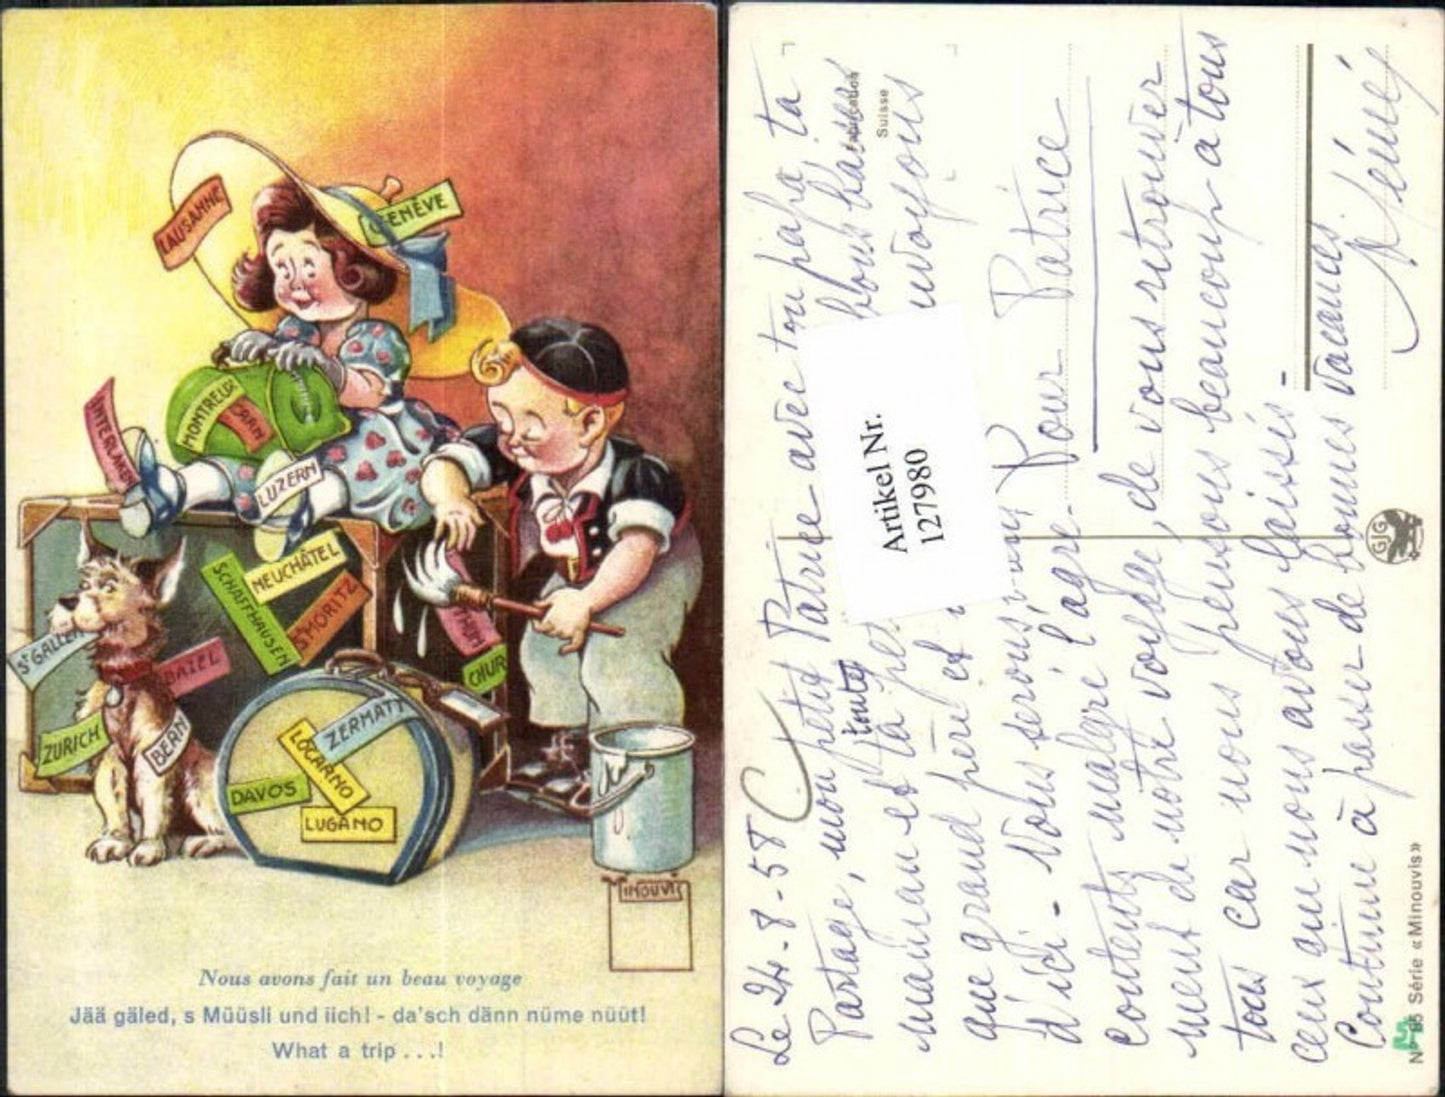 LAUSANNE
GENÈVE
INTERLAKEN
MONTREUX
LUZERN
NEUCHÂTEL
SCHAFFHAUSEN
St MORITZ
St GALLEN
BAZEL
CHUR
ZURICH
BERN
ZERMATT
LOCARNO
DAVOS
LUGANO
MINOUVIS
Nous avons fait un beau voyage
Jää gäled, s Müüsli und iich! - da'sch dänn nüme nüüt!
What a trip ...!
Fabrication
Suisse
Pour Patrice
Le 24-8-58
mon petit Patrice avec ton papa, ta
Partage,
maman et ta toutes bons baisers
que grand père et
d'ici - Nous serons
contents malgré l'agré-
ment de notre voyage, de vous retrouver
tous car nous pensons beaucoup à tous
ceux que nous avons laissés -
Continue à passer de bonnes vacances
Mémé
Artikel Nr.
127980
GJG
Série «Minouvis»